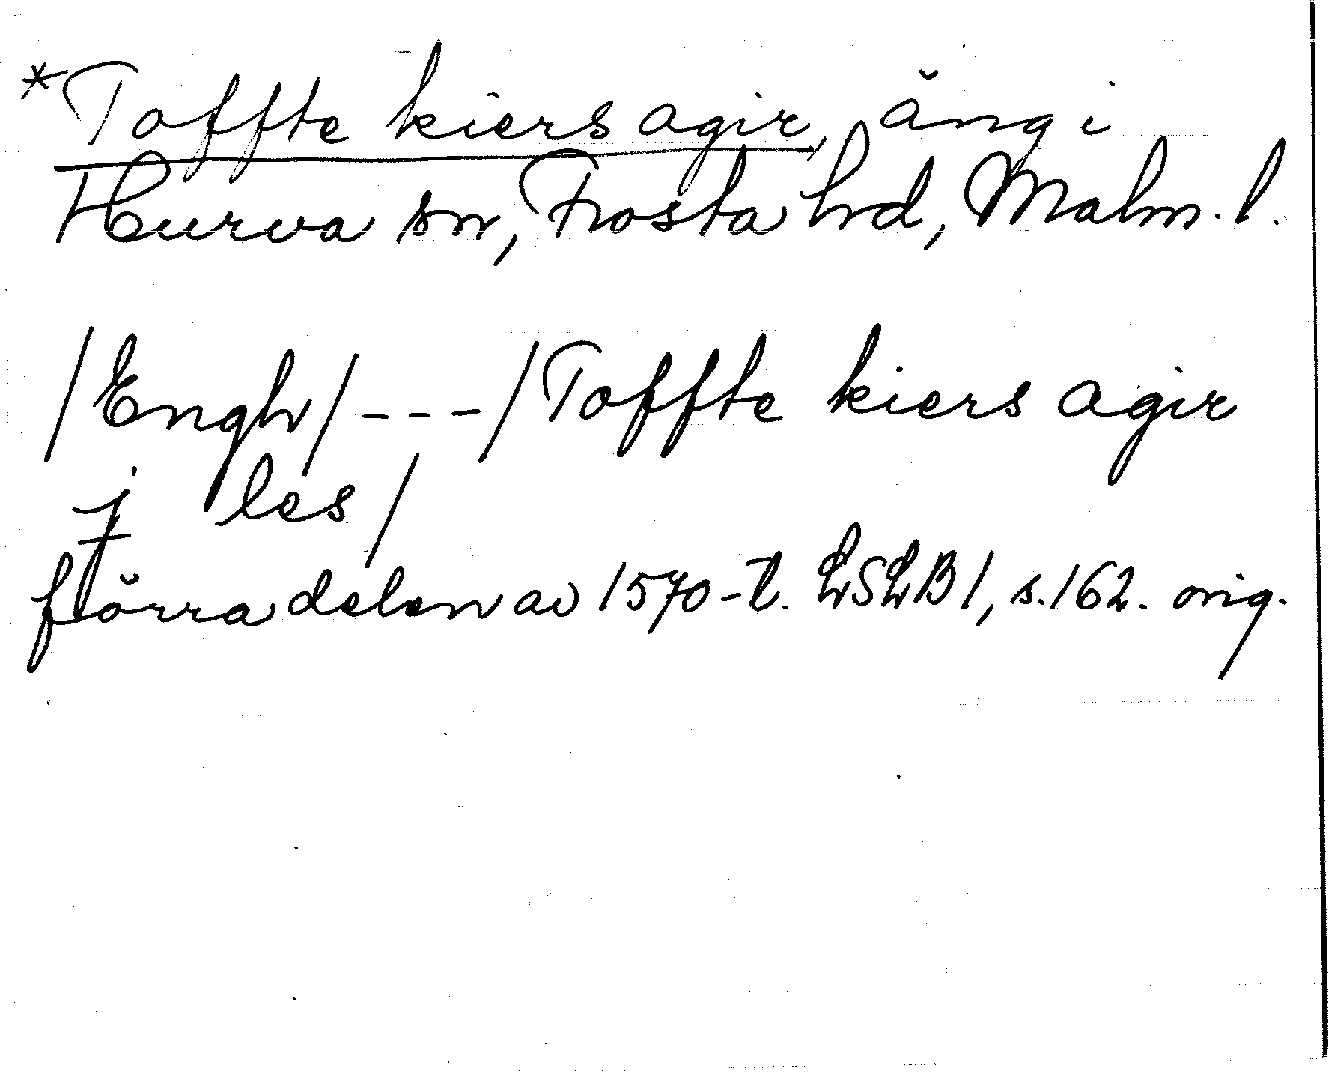 *Toffte kiers agir, äng i
Hurva sn, Frosta hd, Malm. l.
/Engh/---/Toffte kiers agir
j les/
förra delen av 1570-t. LSLB 1, s. 162. orig.